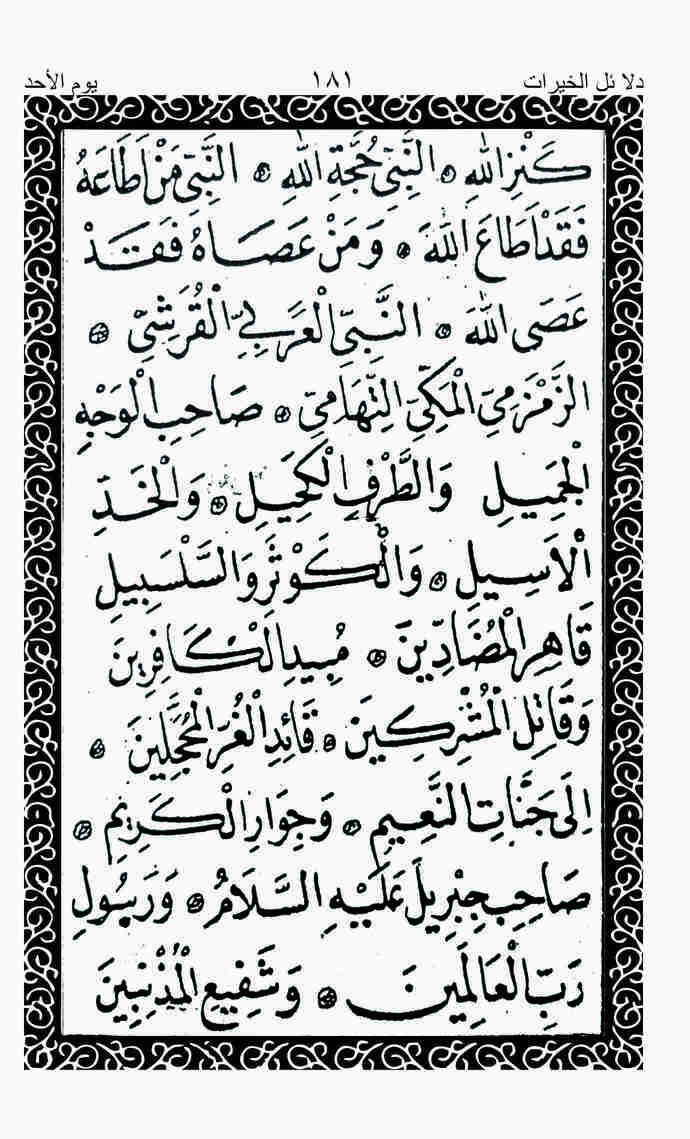 دلائل الخيرات ١٨١ يوم الأحد
كَنْزِ اللهِ ۞ النَّبِيِّ حُجَّةِ اللهِ ۞ النَّبِيِّ مَنْ اَطَاعَهُ
فَقَدْ اَطَاعَ اللهَ ۞ وَمَنْ عَصَاهُ فَقَدْ
عَصَى اللهَ ۞ النَّبِيِّ الْعَرَبِيِّ الْقُرَشِيِّ ۞
الزَّمْزَمِيِّ الْمَكِّيِّ التِّهَامِيِّ ۞ صَاحِبِ الْوَجْهِ
الْجَمِيلِ وَالطَّرْفِ الْكَحِيلِ ۞ وَالْخَدِّ
الْاَسِيلِ ۞ وَالْكَوْثَرِ وَالسَّلْسَبِيلِ
قَاهِرِ الْمُضَادِّينَ ۞ مُبِيدِ الْكَافِرِينَ
وَقَاتِلِ الْمُشْرِكِينَ ۞ قَائِدِ الْغُرِّ الْمُحَجَّلِينَ ۞
اِلَى جَنَّاتِ النَّعِيمِ ۞ وَجِوَارِ الْكَرِيمِ ۞
صَاحِبِ جِبْرِيلَ عَلَيْهِ السَّلَامُ ۞ وَرَسُولِ
رَبِّ الْعَالَمِينَ ۞ وَشَفِيعِ الْمُذْنِبِينَ